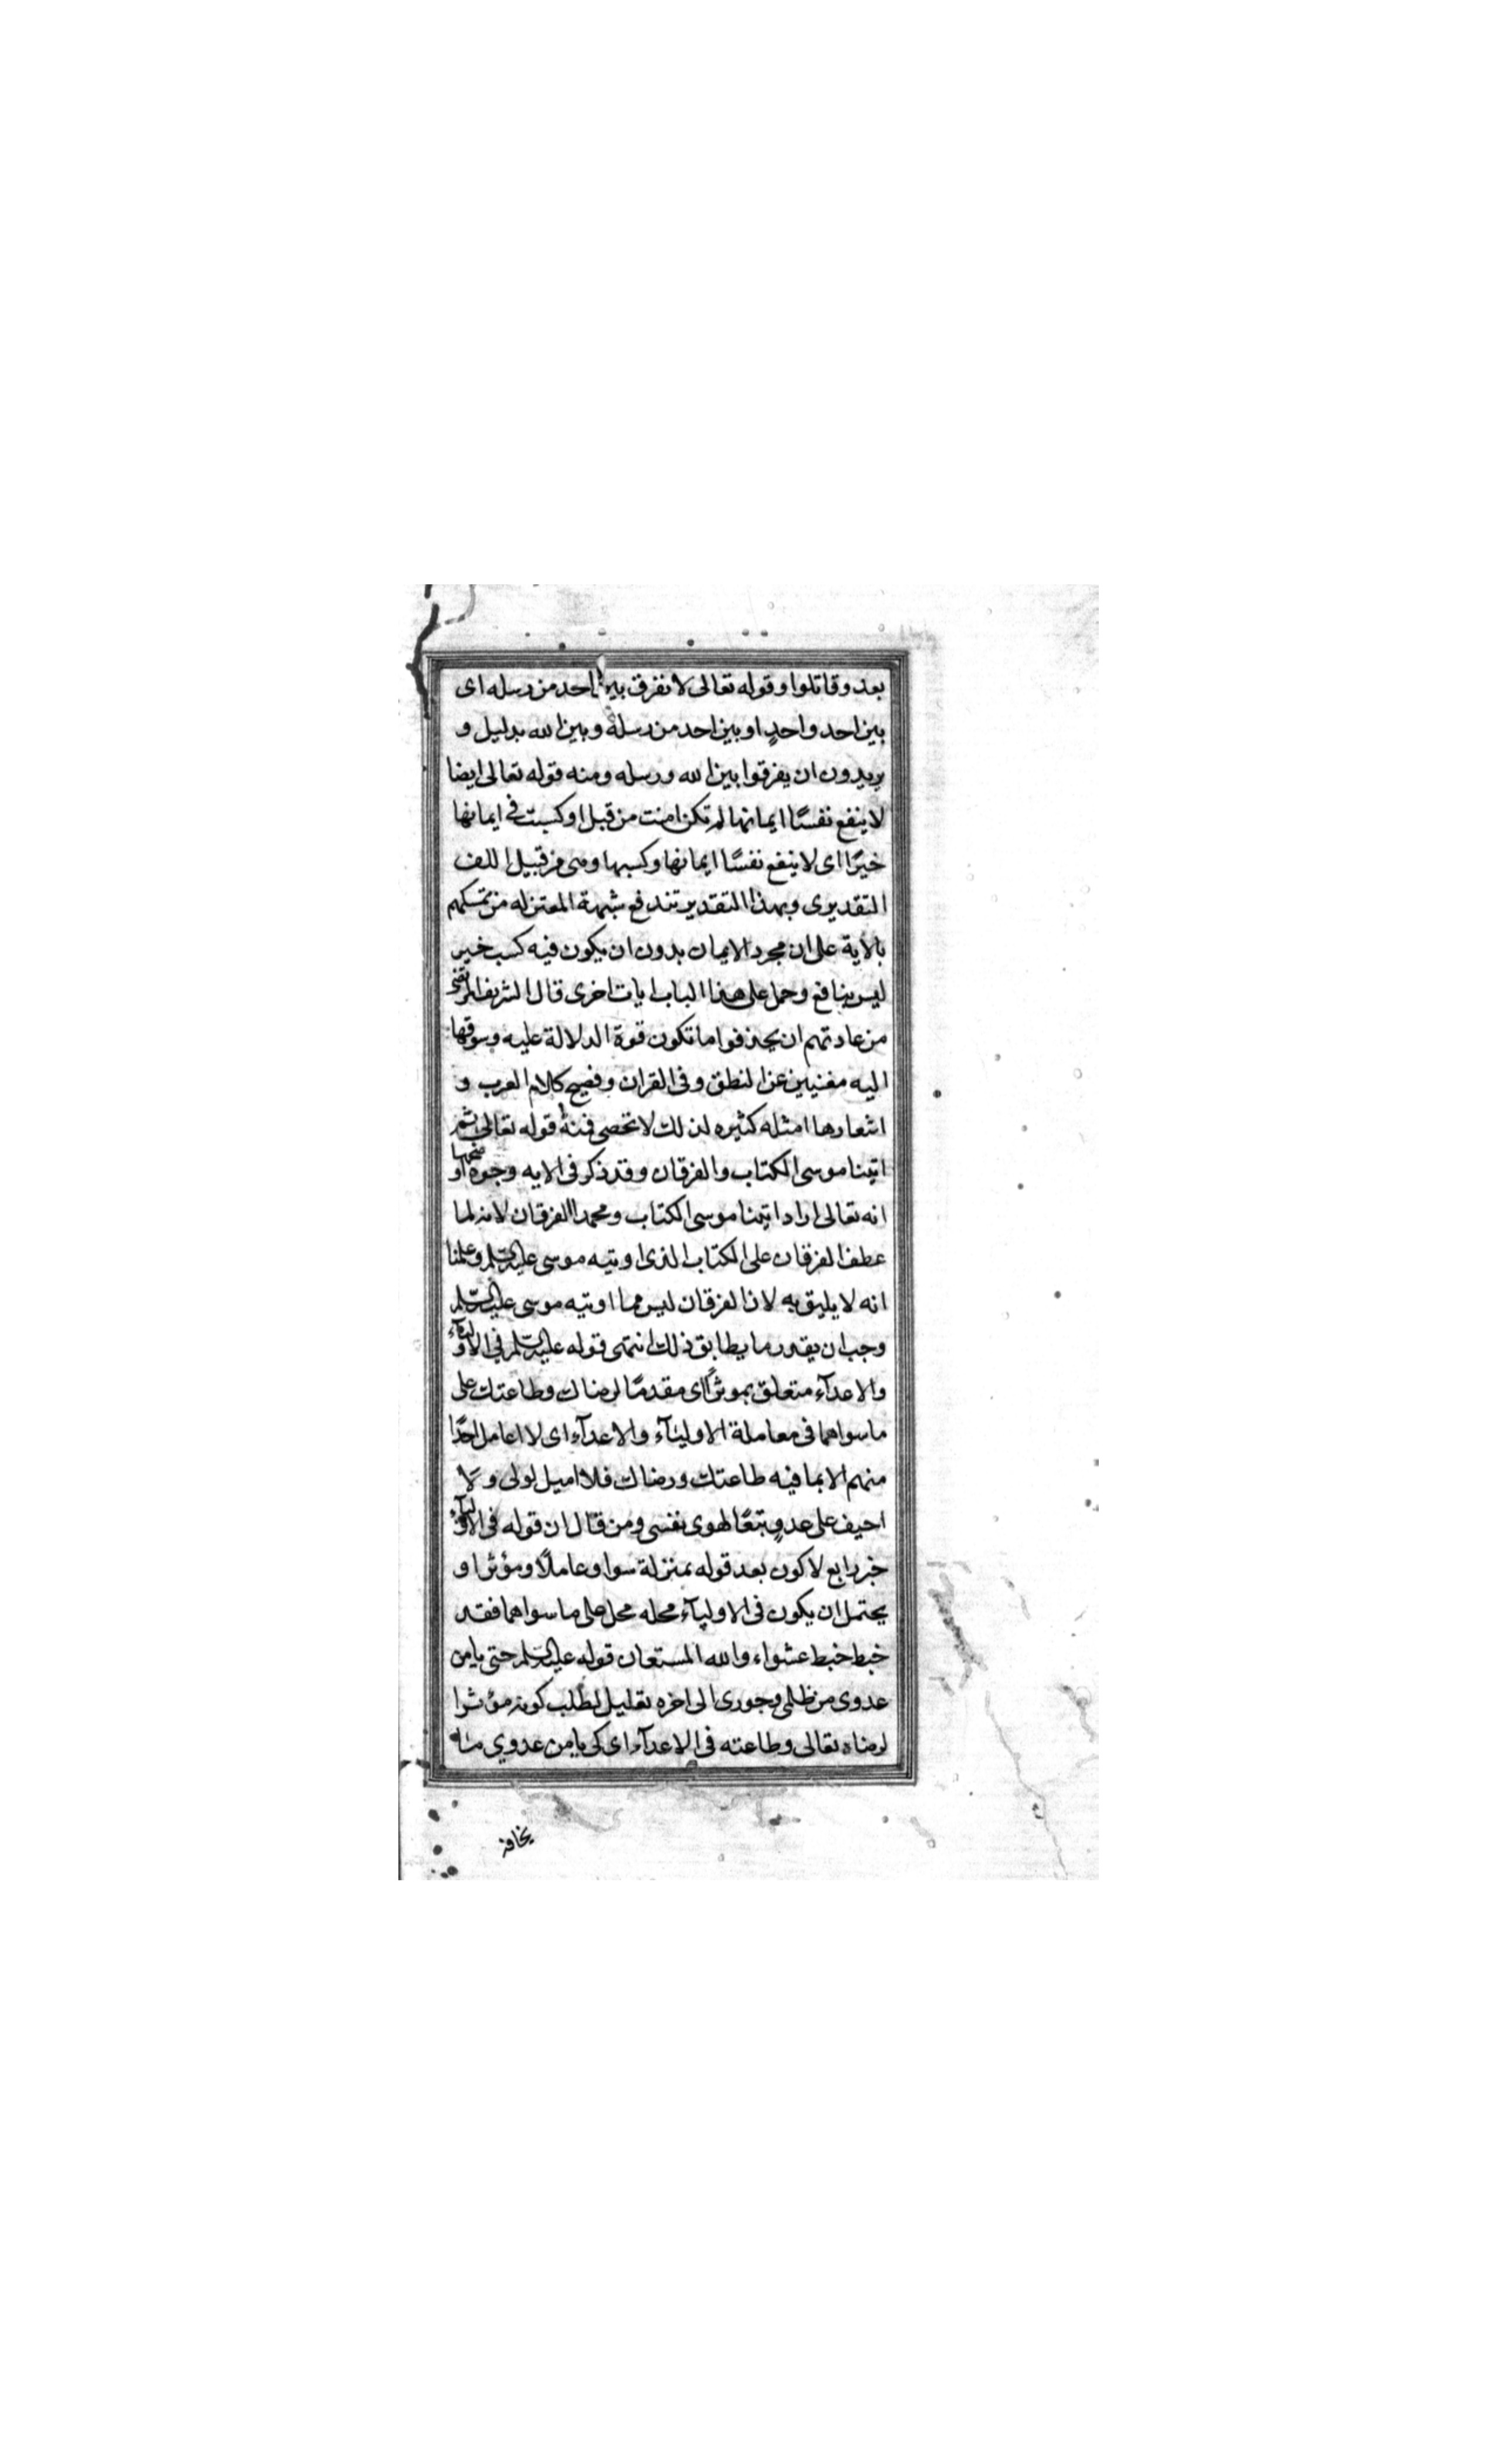 بعد وقاتلوا وقوله تعالى لا نفرق بين احد من رسله اى
بين احد واحدٍ او بين احد من رسله وبين الله بدليل و
يريدون ان يفرقوا بين الله ورسله ومنه قوله تعالى ايضا
لا ينفع نفسًا ايمانها لم تكن امنت من قبل او كسبت فى ايمانها
خيرًا اى لا ينفع نفسًا ايمانها وكسبها وهى من قبيل اللف
التقديرى وبهذا التقدير تندفع شبهة المعتزله من تمسكهم
بالاية على ان مجرد الايمان بدون ان يكون فيه كسب خير
ليس بنافع وحمل على هذا الباب ايات اخرى قال الشريف المرتضى
من عادتهم ان يحذفوا ما تكون قوة الدلالة عليه وسوقها
اليه مغنيين عن النطق وفى القران وفصيح كلام العرب و
اشعارها امثله كثيره لذلك لا تحصى فمنهُ قوله تعالى ثم
اتينا موسى الكتاب والفرقان وقد ذكر فى الايه وجوه اوضحها
انه تعالى اراد اتينا موسى الكتاب ومحمدا الفرقان لانه لما
عطف الفرقان على الكتاب الذى اوتيه موسى عليه السلم وعلمنا
انه لا يليق به لان الفرقان ليس مما اوتيه موسى عليه السلم
وجب ان يقدر ما يطابق ذلك انتهى قوله عليه السلم فى الاوليآء
والاعدآء متعلق بموثرًا اى مقدمًا لرضاك وطاعتك على
ما سواهما فى معاملة الاوليآء والاعدآء اى لا اعامل احدًا
منهم الا بما فيه طاعتك ورضاك فلا اميل لولى ولا
احيف على عدوٍ تبعًا لهوى نفسى ومن قال ان قوله فى الاوليآء
خبر رابع لاكون بعد قوله بمنزلة سوا وعاملًا ومؤثرا و
يحتمل ان يكون فى الاوليآء محله محل على ما سواهما فقد
خبط خبط عشواء والله المستعان قوله عليه السلم حتى يامن
عدوى من ظلمى وجورى الى اخره تعليل لطلب كونه مؤثرا
لرضاه تعالى وطاعته فى الاعدآء اى كى يامن عدوي مما
يخافه